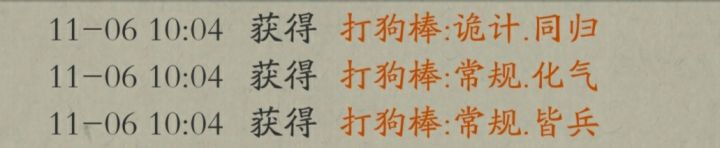 11-06 10:04 获得 打狗棒:诡计.同归
11-06 10:04 获得 打狗棒:常规.化气
11-06 10:04 获得 打狗棒:常规.皆兵